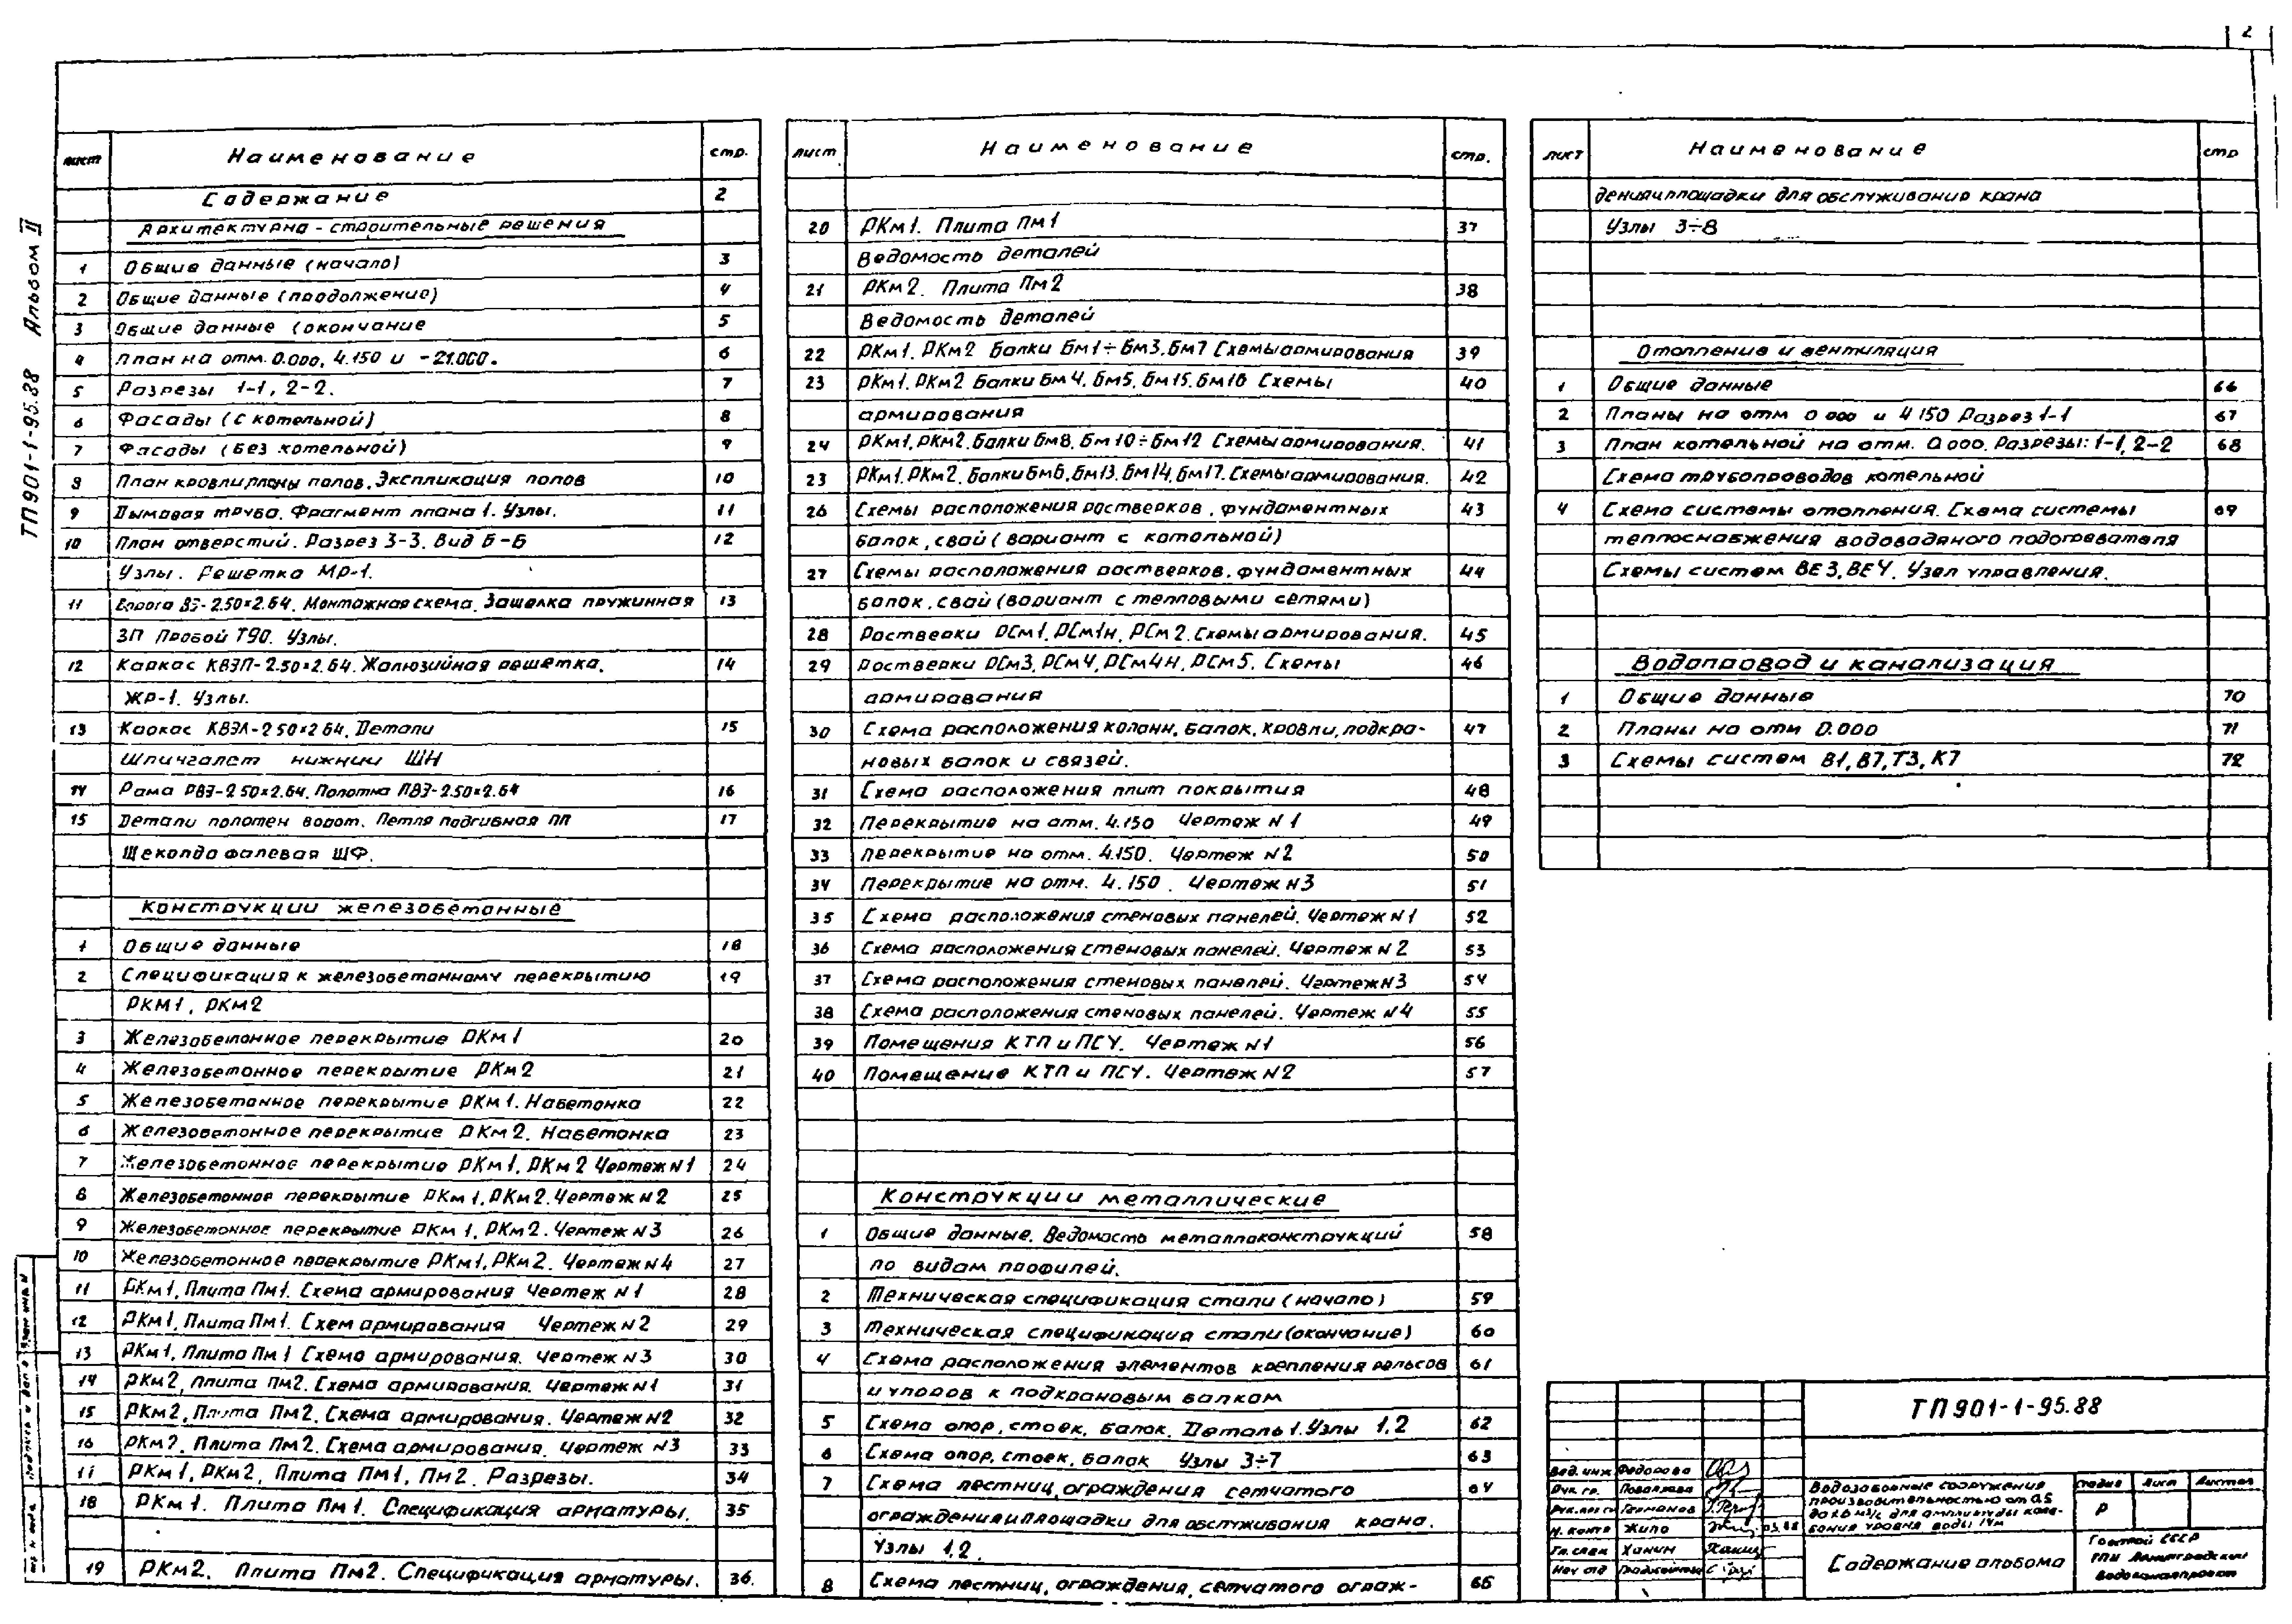 2
ТП901-1-95.88 Альбом II
лист Наименование стр.
Содержание 2
Архитектурно-строительные решения
1 Общие данные (начало) 3
2 Общие данные (продолжение) 4
3 Общие данные (окончание 5
4 План на отм. 0.000, 4.150 и -21.000. 6
5 Разрезы 1-1, 2-2. 7
6 Фасады (с котельной) 8
7 Фасады (без котельной) 9
8 План кровли, планы полов. Экспликация полов 10
9 Дымовая труба. Фрагмент плана 1. Узлы. 11
10 План отверстий. Разрез 3-3. Вид Б-Б 12
Узлы. Решетка МР-1.
11 Ворота ВЭ-2.50×2.64. Монтажная схема. Защелка пружинная 13
ЗП Пробой Т90. Узлы.
12 Каркас КВЭП-2.50×2.64. Жалюзийная решетка. 14
ЖР-1. Узлы.
13 Каркас КВЭЛ-2.50×2.64. Детали 15
Шпингалет нижний ШН
14 Рама РВЭ-2.50×2.64. Полотна ПВЭ-2.50×2.64 16
15 Детали полотен ворот. Петля подгибная ПП 17
Щеколда фалевая ШФ.
Конструкции железобетонные
1 Общие данные 18
2 Спецификация к железобетонному перекрытию 19
РКм1, РКм2
3 Железобетонное перекрытие РКм1 20
4 Железобетонное перекрытие РКм2 21
5 Железобетонное перекрытие РКм1. Набетонка 22
6 Железобетонное перекрытие РКм2. Набетонка 23
7 Железобетонное перекрытие РКм1, РКм2 Чертеж N1 24
8 Железобетонное перекрытие РКм1, РКм2. Чертеж N2 25
9 Железобетонное перекрытие РКм1, РКм2. Чертеж N3 26
10 Железобетонное перекрытие РКм1, РКм2. Чертеж N4 27
11 РКм1, Плита Пм1. Схема армирования Чертеж N1 28
12 РКм1, Плита Пм1. Схем армирования Чертеж N2 29
13 РКм1, Плита Пм1 Схема армирования. Чертеж N3 30
14 РКм2, Плита Пм2. Схема армирования. Чертеж N1 31
15 РКм2, Плита Пм2. Схема армирования. Чертеж N2 32
16 РКм2. Плита Пм2. Схема армирования. Чертеж N3 33
17 РКм1, РКм2, Плита Пм1, Пм2. Разрезы. 34
18 РКм1. Плита Пм1. Спецификация арматуры. 35
19 РКм2. Плита Пм2. Спецификация арматуры. 36.
лист Наименование стр.
20 РКм1. Плита Пм1 37
Ведомость деталей
21 РКм2. Плита Пм2 38
Ведомость деталей
22 РКм1, РКм2 Балки Бм1÷Бм3, Бм7 Схемы армирования 39
23 РКм1, РКм2 Балки Бм4, Бм5, Бм15, Бм16 Схемы 40
армирования
24 РКм1, РКм2. Балки Бм8, Бм10÷Бм12 Схемы армирования. 41
23 РКм1, РКм2. Балки Бм6, Бм13, Бм14, Бм17. Схемы армирования. 42
26 Схемы расположения ростверков, фундаментных 43
балок, свай (вариант с котельной)
27 Схемы расположения ростверков, фундаментных 44
балок, свай (вариант с тепловыми сетями)
28 Ростверки РСм1, РСм1н, РСм2. Схемы армирования. 45
29 Ростверки РСм3, РСм4, РСм4н, РСм5. Схемы 46
армирования
30 Схема расположения колонн, балок, кровли, подкра- 47
новых балок и связей.
31 Схема расположения плит покрытия 48
32 Перекрытие на отм. 4.150 Чертеж N1 49
33 Перекрытие на отм. 4.150. Чертеж N2 50
34 Перекрытие на отм. 4.150. Чертеж N3 51
35 Схема расположения стеновых панелей. Чертеж N1 52
36 Схема расположения стеновых панелей. Чертеж N2 53
37 Схема расположения стеновых панелей. Чертеж N3 54
38 Схема расположения стеновых панелей. Чертеж N4 55
39 Помещения КТП и ПСУ. Чертеж N1 56
40 Помещение КТП и ПСУ. Чертеж N2 57
Конструкции металлические
1 Общие данные. Ведомость металлоконструкций 58
по видам профилей.
2 Техническая спецификация стали (начало) 59
3 Техническая спецификация стали (окончание) 60
4 Схема расположения элементов крепления рельсов 61
и упоров к подкрановым балкам
5 Схема опор, стоек, балок. Деталь 1. Узлы 1,2 62
6 Схема опор, стоек, балок Узлы 3÷7 63
7 Схема лестниц, ограждения сетчатого 64
ограждения и площадки для обслуживания крана.
Узлы 1,2.
8 Схема лестниц, ограждения, сетчатого ограж- 65
лист Наименование стр
дения и площадки для обслуживания крана
Узлы 3÷8
Отопление и вентиляция
1 Общие данные 66
2 Планы на отм 0.000 и 4.150 Разрез 1-1 67
3 План котельной на отм. 0.000. Разрезы: 1-1, 2-2 68
Схема трубопроводов котельной
4 Схема системы отопления. Схема системы 69
теплоснабжения водоводяного подогревателя
Схемы систем ВЕ3, ВЕ4. Узел управления.
Водопровод и канализация
1 Общие данные 70
2 Планы на отм 0.000 71
3 Схемы систем В1, В7, Т3, К7 72
ТП901-1-95.88
Вед. инж Федорова
Рук. гр.
Германов
Н. контр Жило 03.88
Гл. спец Ханин
Нач отд
Водозаборные сооружения
производительностью от 0.5
до м³/с для амплитуды коле-
бания уровня воды 14м
Стадия Лист Листов
Р
Содержание альбома
Госстрой СССР
ГПИ Ленинградский
Водоканалпроект